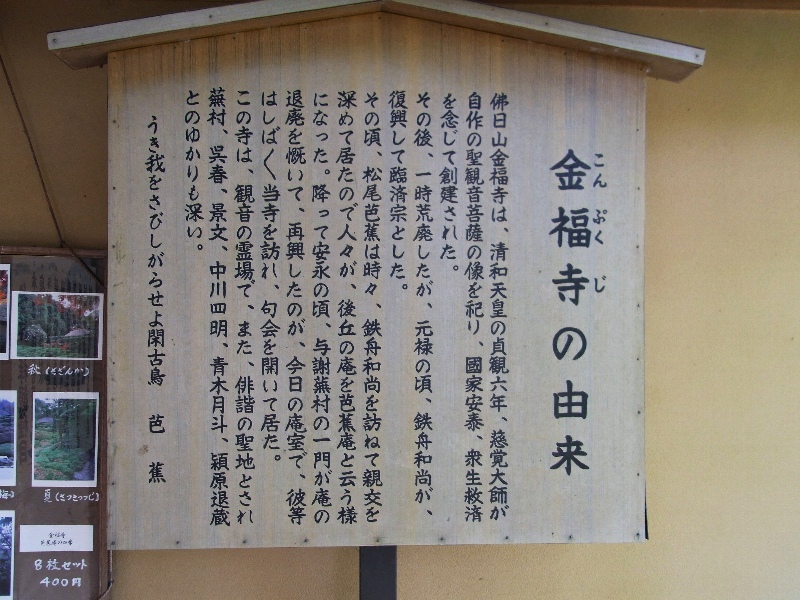 金福寺の由来
こんぷくじ
佛日山金福寺は、清和天皇の貞観六年、慈覚大師が
自作の聖観音菩薩の像を祀り、國家安泰、衆生救済
を念じて創建された。
その後、一時荒廃したが、元禄の頃、鉄舟和尚が、
復興して臨済宗とした。
その頃、松尾芭蕉は時々、鉄舟和尚を訪ねて親交を
深めて居たので人々が、後丘の庵を芭蕉庵と云う様
になった。降って安永の頃、与謝蕪村の一門が庵の
退廃を慨いて、再興したのが、今日の庵室で、彼等
はしば〱当寺を訪れ、句会を開いて居た。
この寺は、観音の霊場で、また、俳諧の聖地とされ
蕪村、呉春、景文、中川四明、青木月斗、潁原退蔵
とのゆかりも深い。
うき我をさびしがらせよ閑古鳥 芭蕉
秋(さざんか)
夏(さつきつつじ)
金福寺
8枚セット
400円